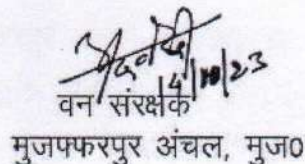 4/10/23
वन संरक्षक
मुजफ्फरपुर अंचल, मुज0